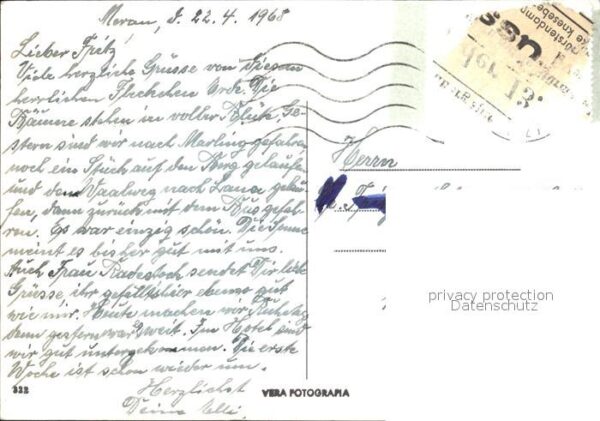 Meran, d. 22. 4. 1968
Lieber Fritz!
Viele herzliche Grüsse von diesem
herrlichen Fleckchen Erde. Die
Bäume stehen in voller Blüte. Ge-
stern sind wir nach Marling gefahren
noch ein Stück auf den Berg gelaufen
und den Waalweg nach Lana gelau-
fen, dann zurück mit dem Bus gefah-
ren. Es war einzig schön. Die Sonne
meint es bisher gut mit uns.
Auch Frau sendet Dir liebe
Grüsse, ihr gefällts hier ebenso gut
wie mir. Heute machen wir Ruhetag
denn gestern war's weit. Im Hotel sind
wir gut untergekommen. Die erste
Woche ist schon wieder um.
Herzlichst
Deine Elli.
Herrn
privacy protection
Datenschutz
322
VERA FOTOGRAFIA